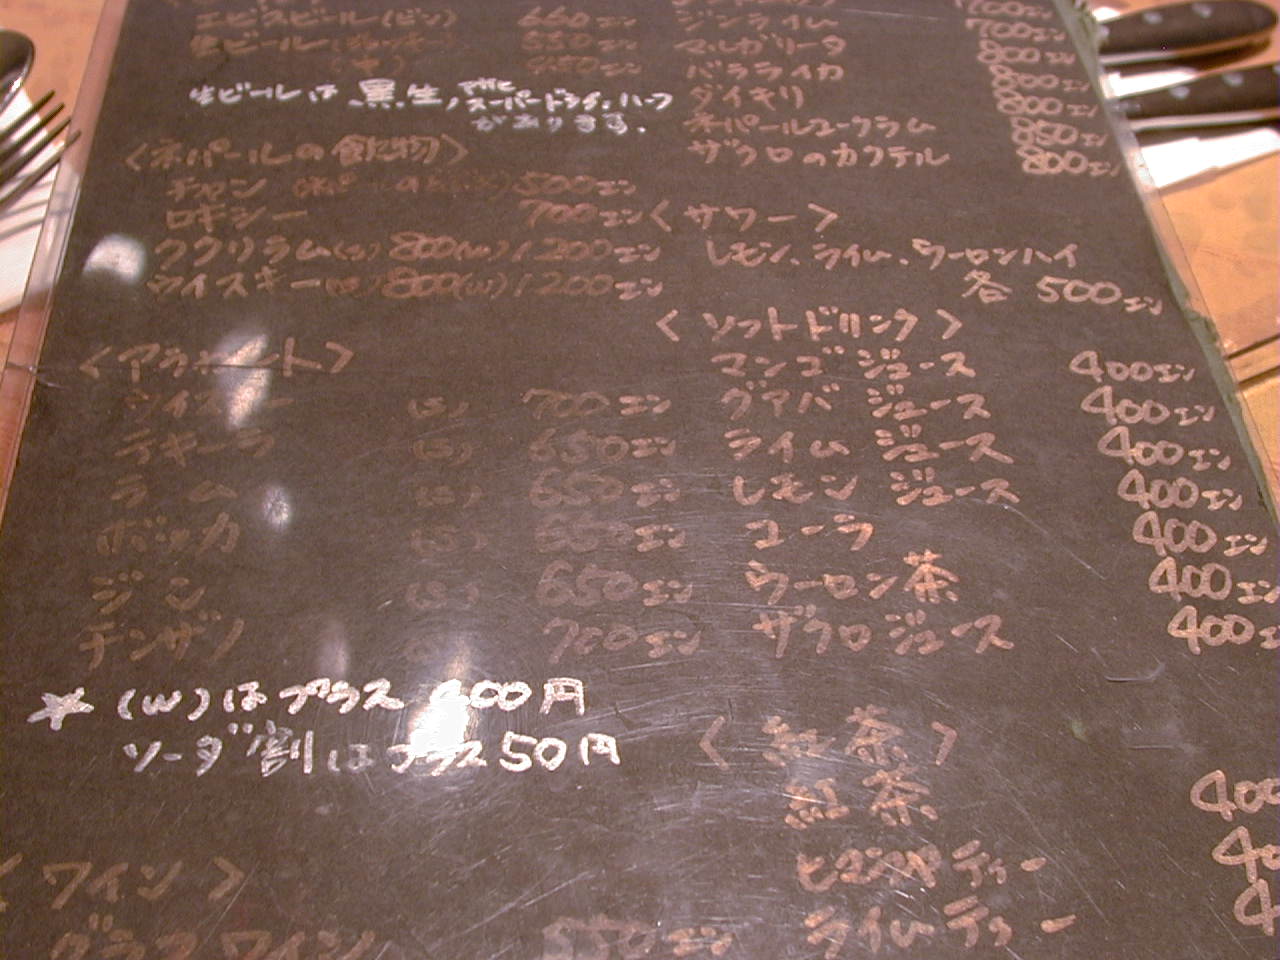 エビスビール(ビン) 660エン
生ビール 550エン
生ビールは黒生,
スーパードライ,ハーフ
があります.
〈ネパールの飲物〉
チャン 500エン
ロキシー 700エン
ククリラム(s)800(w)1200エン
ウイスキー(s)800(w)1200エン
〈アラカルト〉
ウイスキー (s) 700エン
テキーラ (s) 650エン
ラム (s) 650エン
ボッカ (s) 650エン
ジン (s) 650エン
チンザノ 700エン
☆ (w)はプラス 400円
ソーダ割はプラス50円
〈ワイン〉
グラスワイン 550エン
ジンライム 700エン
マルガリータ 800エン
バラライカ 800エン
ダイキリ 800エン
ネパールユーウラム 850エン
ザクロのカクテル 800エン
〈サワー〉
レモン、ライム、ウーロンハイ
各 500エン
〈ソフトドリンク〉
マンゴジュース 400エン
グァバジュース 400エン
ライムジュース 400エン
レモンジュース 400エン
コーラ 400エン
ウーロン茶 400エン
ザクロジュース 400エン
〈紅茶〉
紅茶 400
ティー
ライムティー